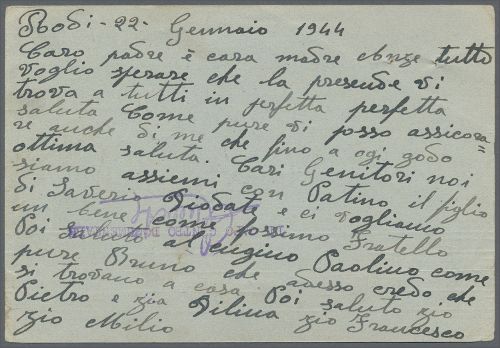 Rodi - 22 - Gennaio 1944
Caro padre è cara madre tutto
voglio sperare che la presende vi
trova a tutti in perfetta perfetta
saluta Come pure vi posso assicora=
re anche di me che fino a ogi godo
ottima saluta. Cari Genitori noi
siamo assiemi con Patino il figlio
di Saverio Diodati e ci vogliamo
un bene come possimo Fratello
Poi saluto al cugino Paolino come
pure Bruno che adesso credo che
si trovano a casa Poi saluto zio
Pietro e zia Dilina zio Francesco
zio Milio